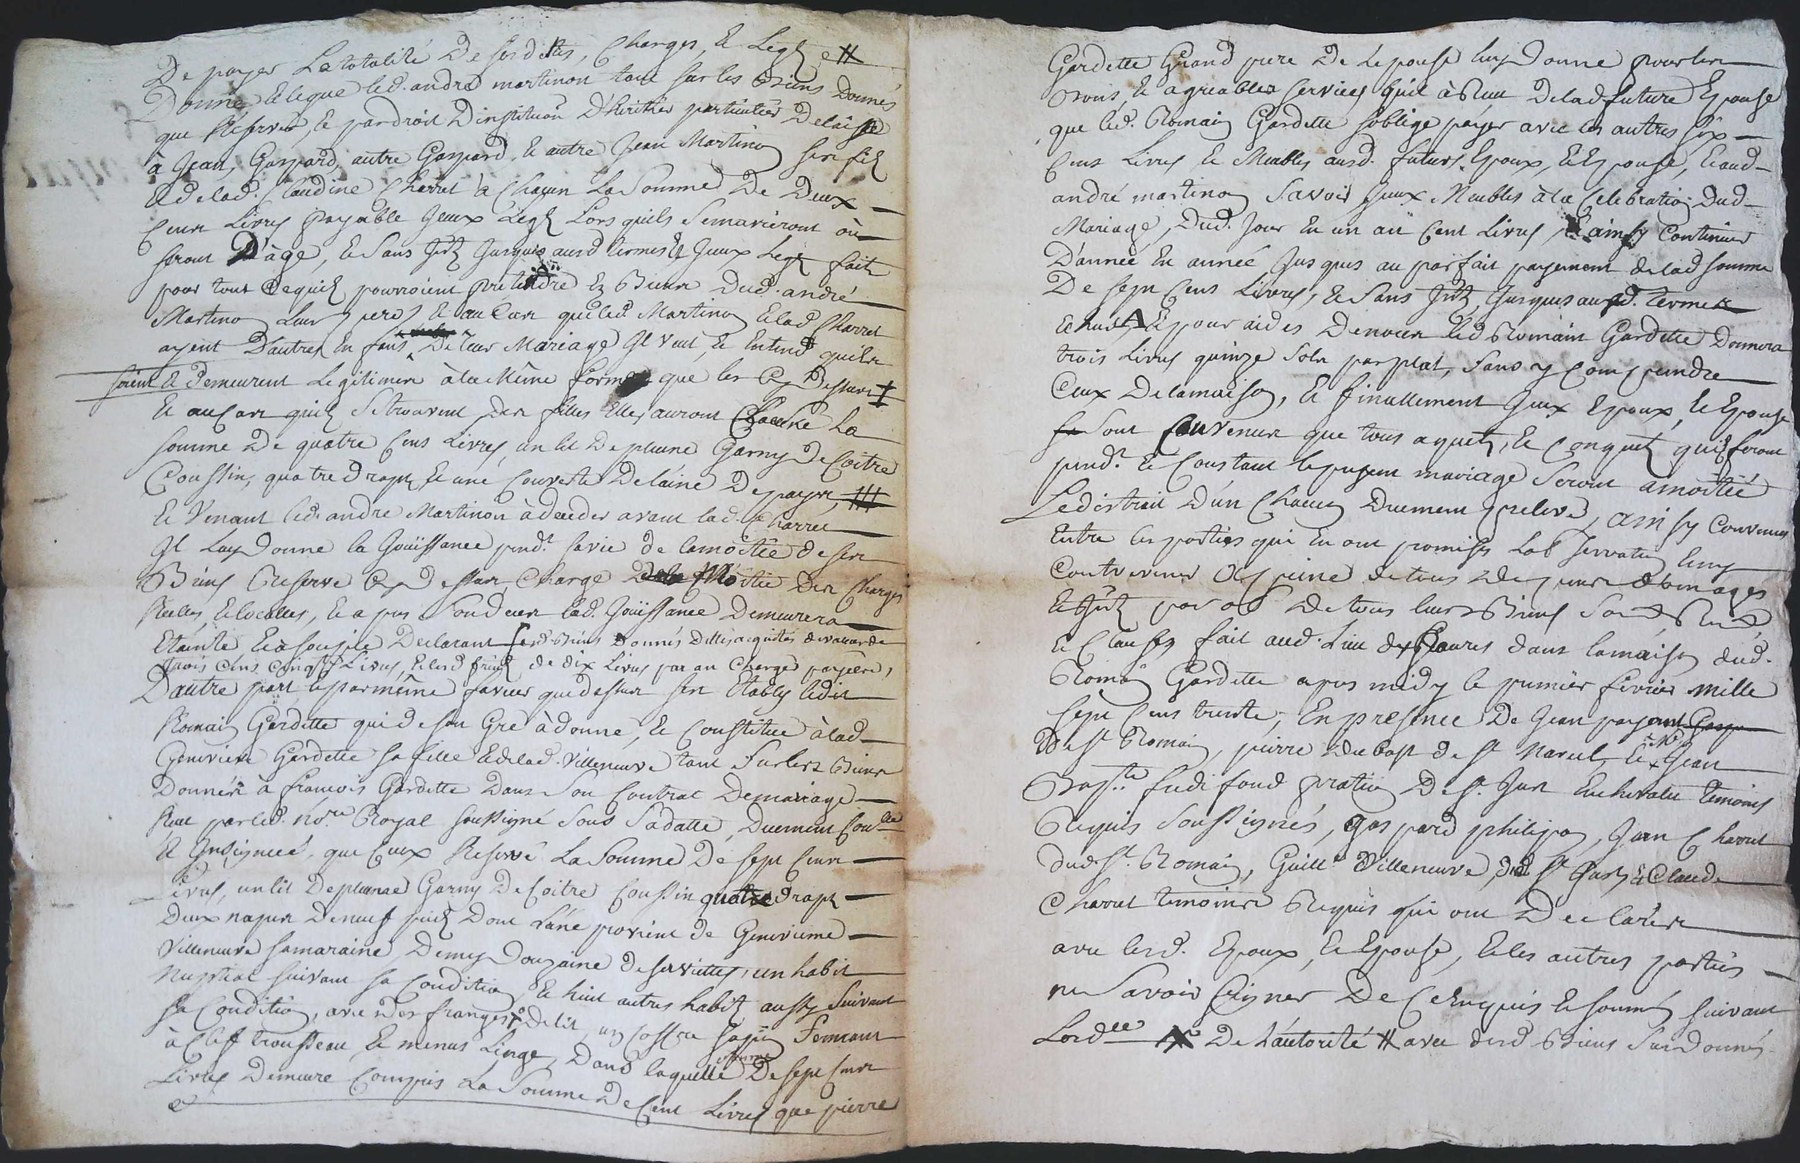 De payer La totalité De sesdittes, Charges, & Legs #
Donne & legue led. andré martinon tant sur les Biens Donnés
que Reservés & par droit D'institution D'heritier particulier Delaisse
à Jean, Gaspard, autre Gaspard, & autre Jean Martinon ses fils
& de lad. Claudine Charret à Chacun La Somme De Deux
Cens Livres payable yceux Legs Lors quils Se marieront où
seront D'âge, & Sans Jnts Jusques ausd termes & yceux Legs faits
pour tout ce quils pourroient prétendre Es Biens Dud. andré
Martinon Leur pere, & au Cas que led Martinon & lad Charret
ayent D'autres Enfans De leur Mariage Jl Veut, & Entend quils
soient & demeurent Legitimes à la Même forme que les Cy Dessus
& au Cas quils se trouvent des filles Elles auront Chacune La
somme De quatre Cens Livres, un lit De plume Garny De Coitre
Coussin, quatre draps & une Couverte De laine De payre, #
& Venant led. andre Martinon à deceder avant lad. Charret
Jl Luy Donne la Jouissance pendt. sa vie de la moitié de ses
Biens Reservé Cy Dessus, Charge De la Moitié Des Charges
Reelles, & localles, & apres Son deces lad. Jouissance Demeurera
Eteinte, & assoupie Declarant Lesd. Biens Donnés Dettes acquittés de valeur de
trois Cens Cinqte Livres, & lesd fruits de dix Livres par an Charges payées,
D'autre part & par même faveur que dessus s'est Etably ledit
Romain Gardette qui de son Gré à donné, & Constitué à lad
Genevieve Gardette sa fille & de lad. Villeneuve tant sur les Biens
Donnés à François Gardette Dans Son Contrat De mariage
Receu par led. nore. Royal soussigné Sous Sa datte, Duement Conlle
& Jnsignueé, que Ceux Reservé La Somme De sept Cens
Livres, un lit De plume Garny De Coitre Coussin quatre draps
Deux napes De neuf pieds Dont L'une provient de Genevieve
Villeneuve sa maraine, Demy Douzaine De serviettes, un habit
Nuptial suivant sa Condition & huit autres habits aussy Suivant
sa Condition, avec Des franges De lit, un Coffre Sapin Fermant
à Clef trousseau & menus Linge, Dans laquelle somme De sept Cens
Livres Demeure Compris La Somme De Cent Livres que pierre
Gardette Grand pere De L'epouse luy Donne pour les
Bons, & agreables services quil à Reçu De lad future Epouse
que led. Romain Gardette s'oblige payer avec les autres six
Cens Livres & Meubles ausd. futurs Epoux, & Epouse, & aud
andré martinon Savoir yceux Meubles à la Celebration Dud
Mariage, Dud. Jour En un an Cent Livres, & ainsy Continuer
D'année En année Jusques au parfait payement de lad somme
De sept Cens Livres, & Sans Jnts Jusques ausd. termes
& pour aides De noces led Romain Gardette Donnera
trois Livres quinze Sols par plat, Sans y Comprendre
Ceux De la maison, & finallement yceux Epoux, & Epouse
Sont Convenus que tous aquets, & Conquets quils feront
pendt. & Constant le present mariage Seront à moitié
Le distrait D'un Chacun Duement prelevé, ainsy Convenus
Entre les parties qui En ont promis Lobservation Sans
Contrevenir a peine de tous Depens Domages
& Jnts par ob De tous leurs Biens
& Clauses fait aud. Lieu de dans la maison dud.
Romain Gardette apres midy le premier fevrier mille
sept Cens trente, En presence De Jean payant
De St. Romain, pierre Dubost de St. Marcel, & Me Jean
Bapte. pratitien De St. Just En chevalet temoins
Requis Soussignés, Gaspard philipon, Jean Charret
dud St. Romain, Guille. Villeneuve dud St Just, & Claude
Charret temoins Requis qui ont Declaré
avec lesd. Epoux, & Epouse, & les autres parties
ne Savoir Signer De Ce Enquis & sommés suivant
Lordce De L'autorité # avec desd Biens Sus donnés